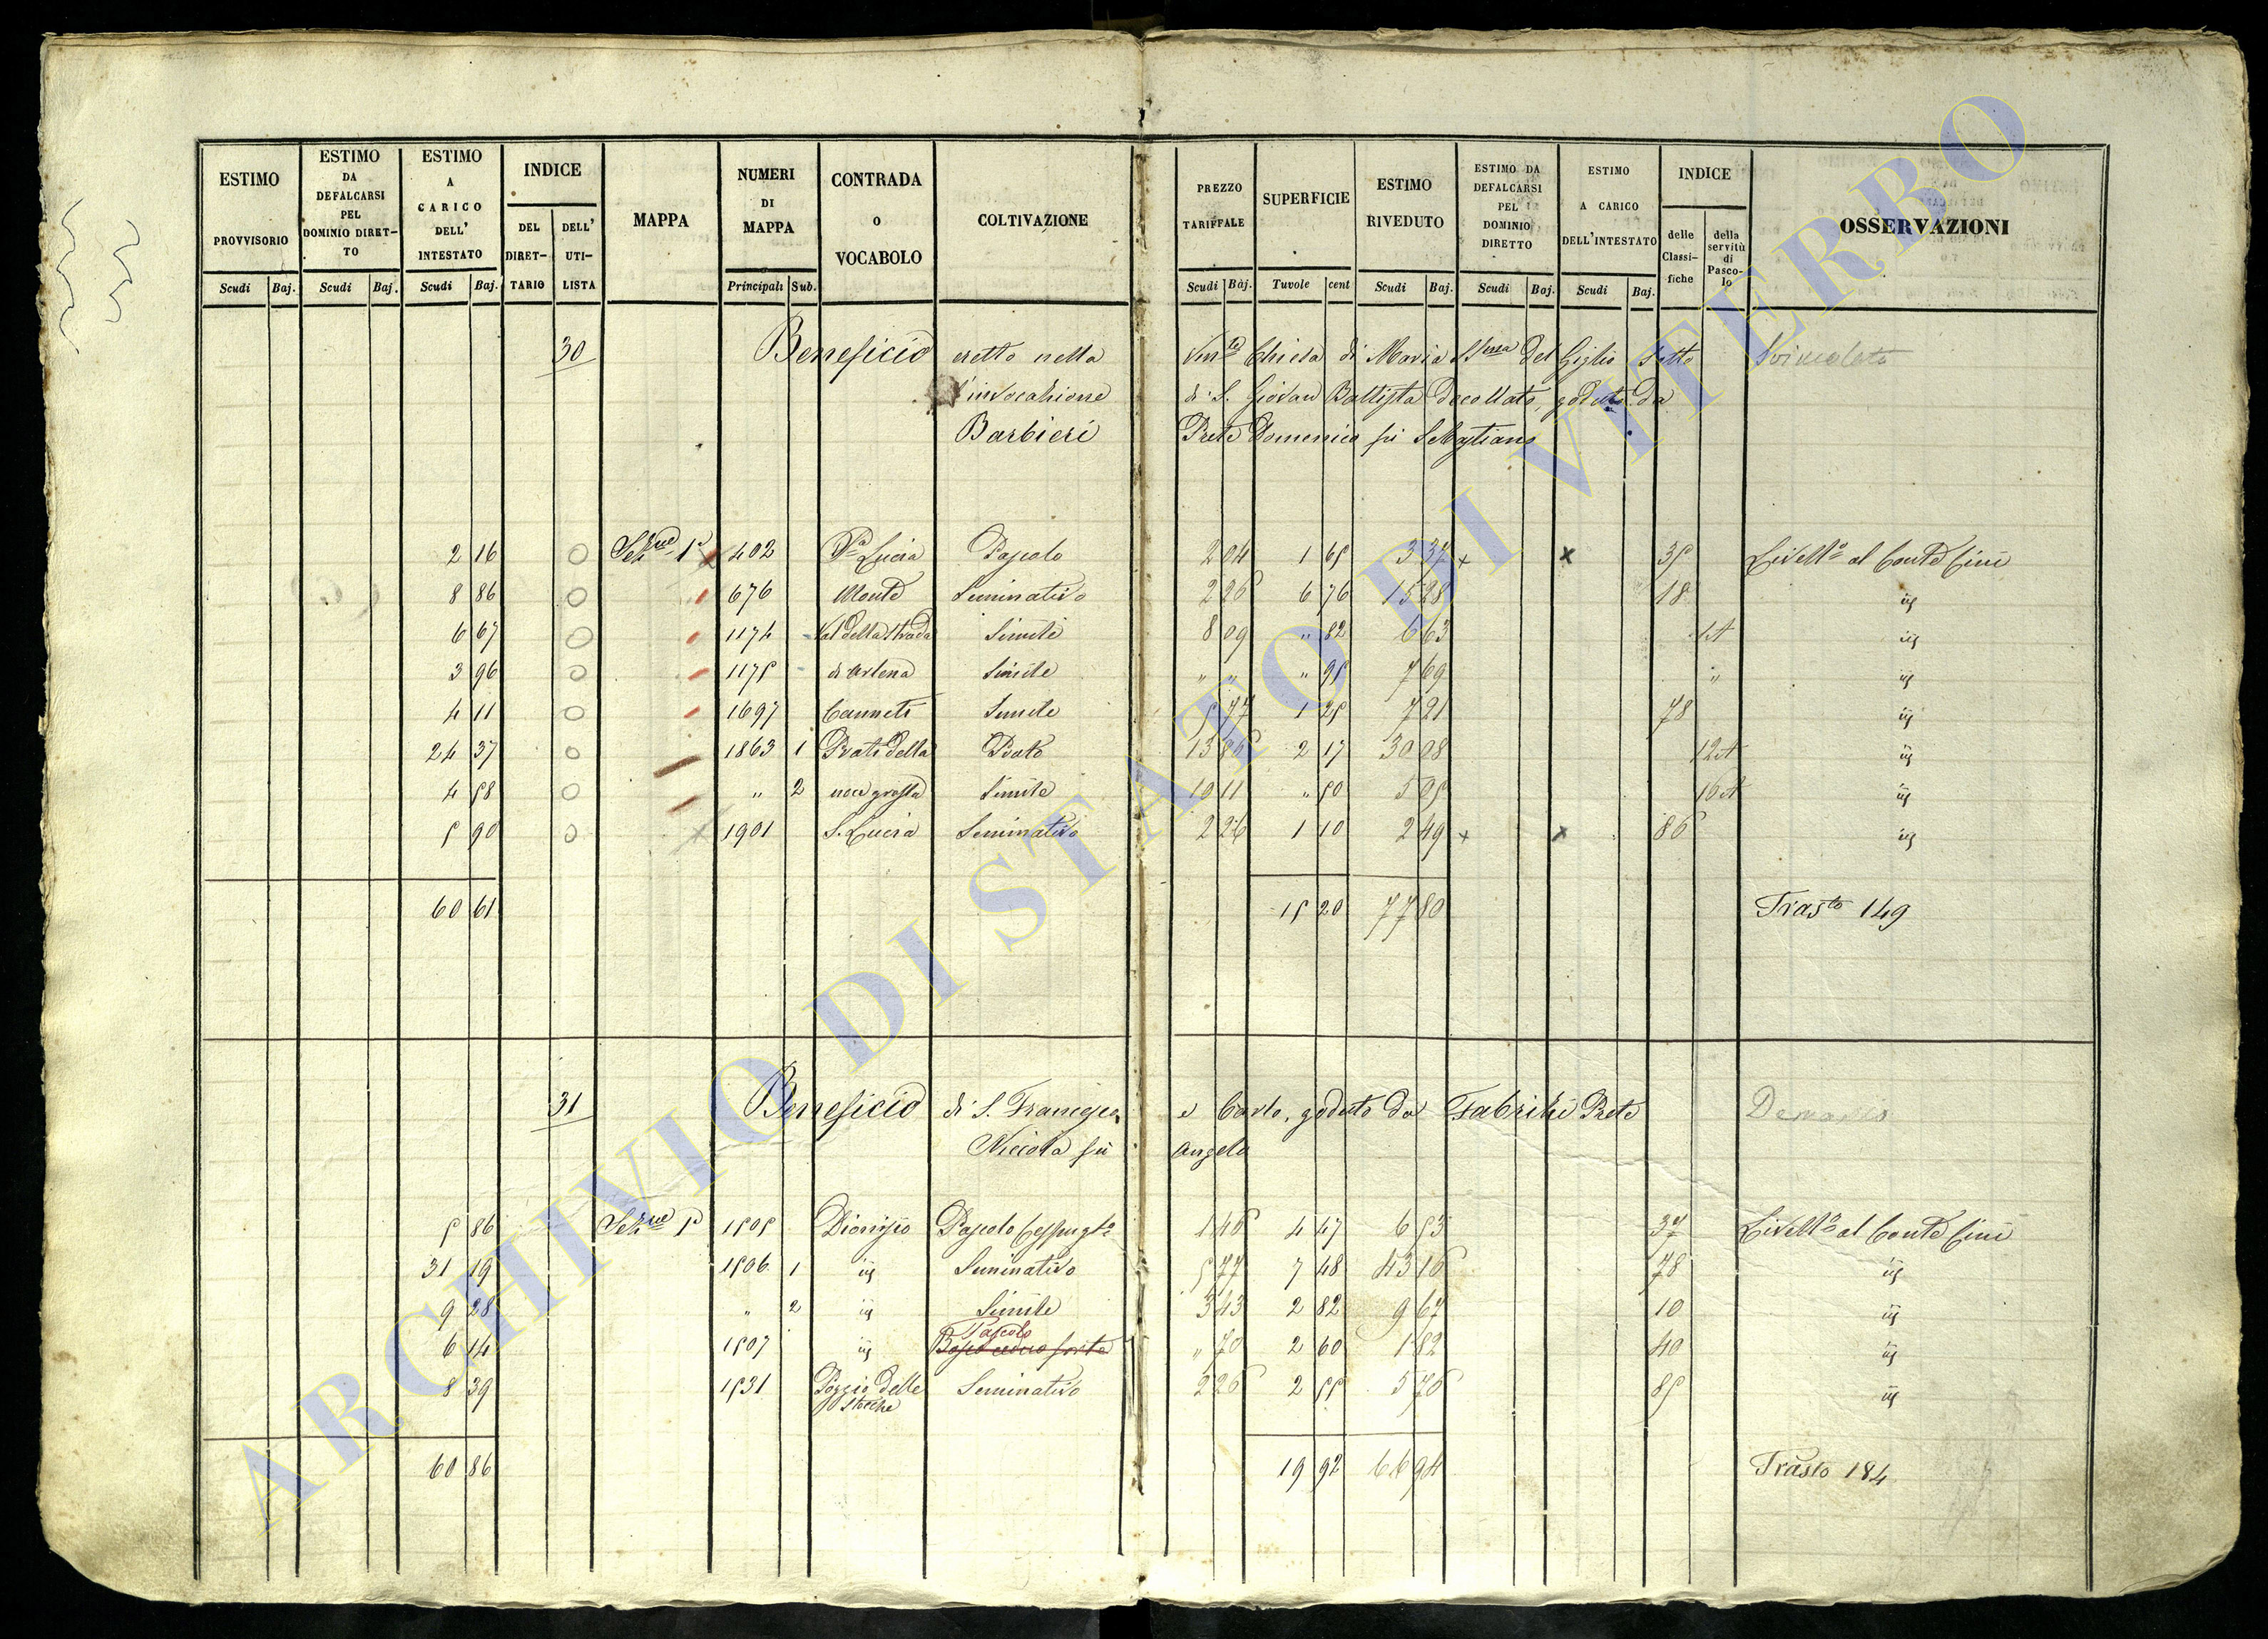 ESTIMO PROVVISORIO Scudi Baj. ESTIMO DA DEFALCARSI PEL DOMINIO DIRET-TO Scudi Baj. ESTIMO A CARICO DELL' INTESTATO Scudi Baj. INDICE DEL DIRET-TARIO DELL' UTI-LISTA MAPPA NUMERI DI MAPPA Principali Sub. CONTRADA O VOCABOLO COLTIVAZIONE PREZZO TARIFFALE Scudi Baj. SUPERFICIE Tavole cent ESTIMO RIVEDUTO Scudi Baj. ESTIMO DA DEFALCARSI PEL DOMINIO DIRETTO Scudi Baj. ESTIMO A CARICO DELL'INTESTATO Scudi Baj. INDICE delle Classi-fiche della servitù di Pasco-lo OSSERVAZIONI
30 Beneficio eretto nella Chiesa di Maria SSma del Giglio sotto Svincolato
l'invocazione di S. Giovan Battista decollato, goduto da
Barbieri Prete Domenico fu Sebastiano
2 16 Sezne 1a 402 Sa Lucia Pascolo 2 04 1 65 3 37 + x 35 Livello al Conte Cini
8 86 676 Monte Seminativo 2 26 6 76 15 28 18 id
6 67 1174 Val della Strada Simile 8 09 " 82 6 63 id
3 96 1175 di Artena Simile " " " 95 7 69 " id
4 11 1697 Canneti Simile 5 77 1 25 7 21 78 id
24 37 1863 1 Prati della Prato 13 86 2 17 30 08 12 A id
4 58 " 2 noce grossa Simile 10 11 " 50 5 05 16 A id
5 90 1901 S. Lucia Seminativo 2 26 1 10 2 49 + x 86 id
60 61 15 20 77 80 Trasto 149
31 Beneficio di S. Francesco e Carlo, goduto da Fabrizi Prete Demanio
Niccola fu Angelo
5 86 Sezne 1a 1505 Dionisio Pascolo Cespugto 1 46 4 47 6 53 37 Livello al Conte Cini
31 19 1506 1 id Seminativo 5 77 7 48 43 16 78 id
9 28 " 2 id Simile 3 43 2 82 9 67 10 id
Pascolo
6 14 1507 id Bosco ceduo forte " 70 2 60 1 82 40 id
8 39 1531 Poggio delle Seminativo 2 26 2 55 5 76 85 id
60 86 19 92 66 94 Trasto 184
ARCHIVIO DI STATO DI VITERBO